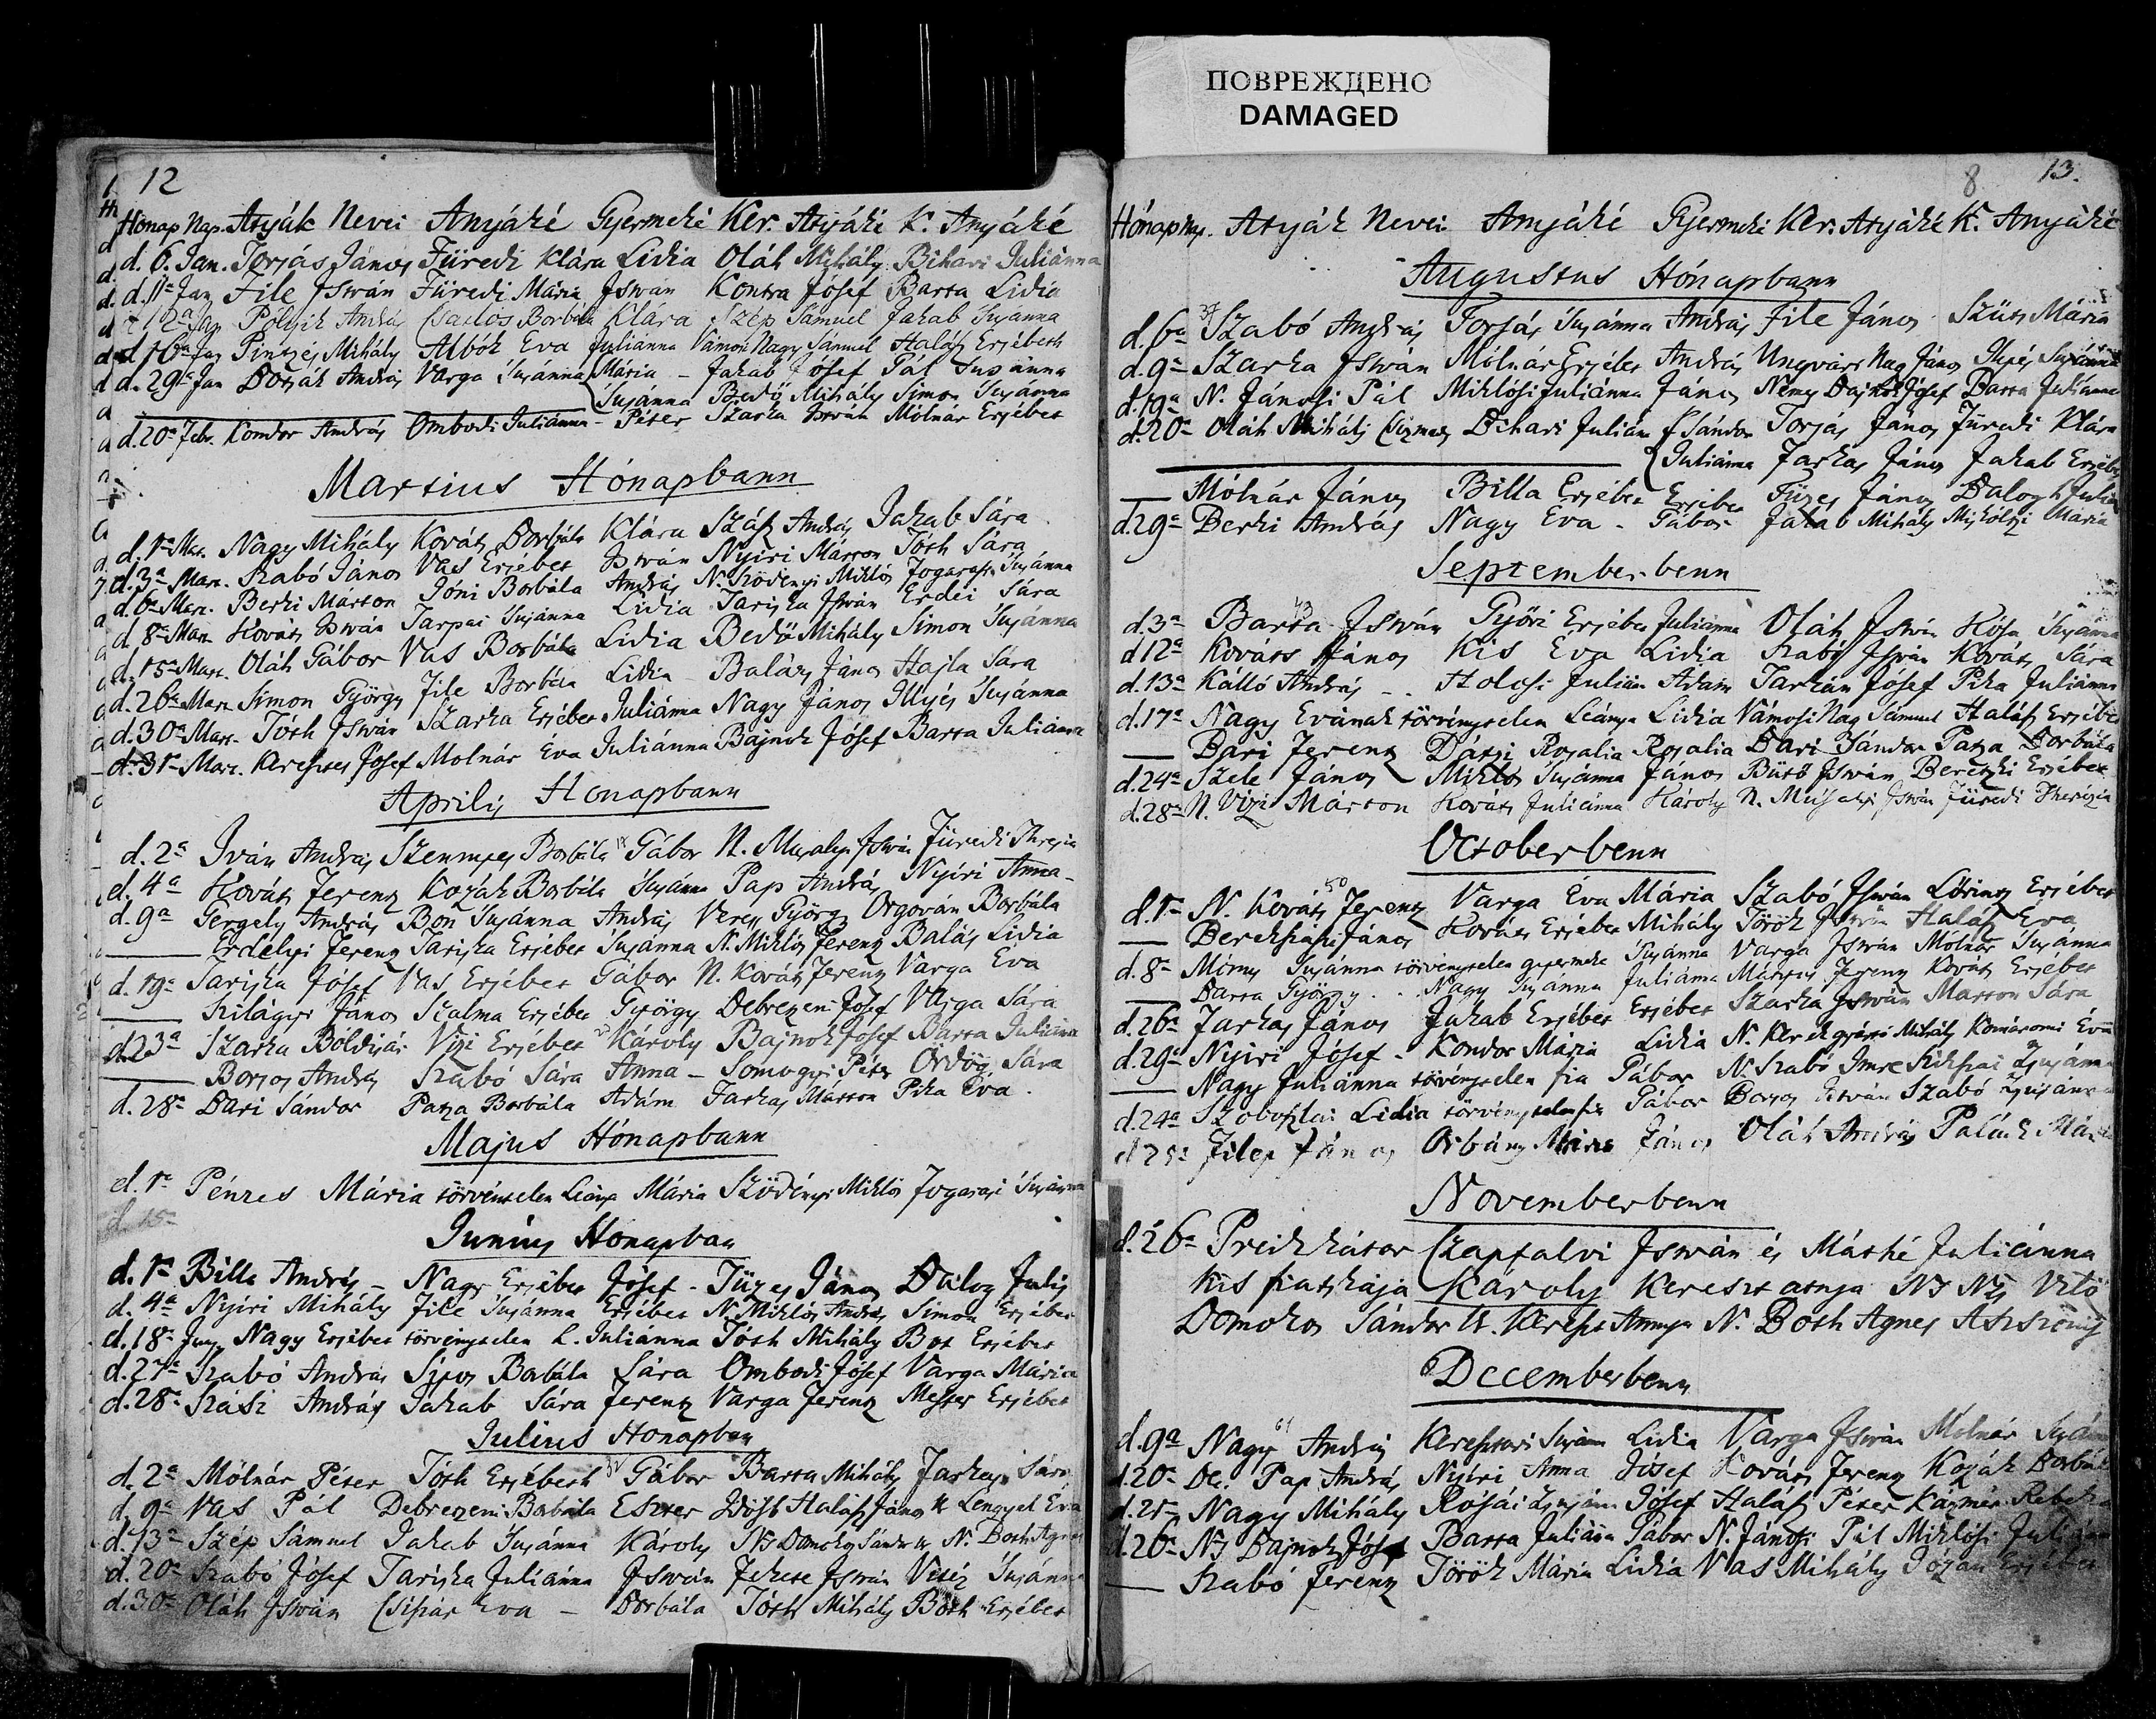 ПОВРЕЖДЕНО
DAMAGED
12
Hónap Nap. Atyák Nevei Anyáké Gyermeké Ker. Atyáké K. Anyáké
d. 6. Jan. Torjás János Füredi Klára Lidia Oláh Mihály Bihari Juliánna
d. 11a Jan File István Füredi Mária István Kontra Josef Barta Lidia
Jan András Borbála Klára Szép Sámuel Jakab Susánna
d 16a Jan Mihály Albók Eva Julianna Vámosi Nagy Sámuel Halász Ersébeth
d. 29a Jan András Varga Susánna Mária - Jakab Jósef Pál Susánna
Susánna Bedő Mihály Simon Susánna
d. 20a Febr. Kondor András Ombodi Juliánna - Péter Szarka István Mólnár Ersébet
Martius Hónapbann
d. 1a Mar. Nagy Mihály Kováts Borbála Klára Szász András Jakab Sára
d. 3a Mart. Szabó János Vas Ersébet István Nyiri Márton Tóth Sára
d. 6a Mart. Berki Márton Jóni Borbála András N. Szödényi Miklós Fogarasi Susánna
d. 8a Mart. Kováts István Tarpai Susánna Lidia Tariska István Erdei Sára
d. 15a Mart. Oláh Gábor Vas Borbála Lidia Bedő Mihály Simon Susánna
d. 26a Mart. Simon György File Borbála Lidia Balázs János Hajla Sára
d. 30a Mart. Tóth István Szarka Ersébet Juliánna Nagy János Illyés Susánna
d. 31a Mart. Keresztes Josef Molnár Éva Juliánna Bajnok Jósef Barta Juliánna
Aprilis Honapbann
d. 2a Iván András Szennyes Borbála 18 Gábor N. István Füredi
d. 4a Kováts Ferentz Kozák Borbála Susánna Pap András Nyiri Anna -
d. 9a Gergely András Bon Susánna András Veress György Orgován Borbála
Erdélyi Ferentz Tariska Ersébet Susánna N. Miklós Ferentz Balás Lidia
d. 19a Tariska Jósef Vas Ersébet Gábor N. Kováts Ferentz Varga Eva
Szilágyi János Szalma Ersébet György Debretzeni Josef Varga Sára
d. 23a Szarka Boldisár Vizi Ersébet Károly Bajnok Josef Barta Juliánna
Borsos András Szabó Sára Anna - Somogyi Péter Ördög Sára
d. 28a Bari Sándor Patza Borbála Ádám Farkas Márton Pika Éva.
Majus Hónapbann
d. 1a Pénzes Mária törvénytelen Leánya Mária Szödényi Miklós Fogarasi Susánna
d. 15a
Junius Honapban
d. 1a Billa András - Nagy Ersébet Jósef - Füzes János Balog Julis
d. 4a Nyiri Mihály File Susánna Ersébet N. Miklós András Simon Ersébet
d. 18a Juny Nagy Ersébet törvénytelen L. Juliánna Tóth Mihály Bot Ersébet
d. 27a Szabó András Sipos Borbála Sára Ombodi Jósef Varga Mária
d. 28a Szási András Jakab Sára Ferentz Varga Ferentz Mester Ersébet
Julius Honapban
d. 2a Mólnár Péter Tóth Ersébeth Gábor Barta Mihály Farkas Sára
d. 9a Vas Pál Debretzeni Borbála Eszter Halász János Lengyel Eva
d. 13a Szép Sámuel Jakab Susánna Károly NS Domokos Sándor N. Both Agnes
d. 20a Szabó Jósef Tariska Juliánna István Fekete István Vitéz Susánna
d. 30a Oláh István Eva - Borbála Tóth Mihály Both Ersébet
8 13.
Hónap Nap. Atyák Nevei Anyáké Gyermeké Ker. Atyáké K. Anyáké
Augustus Hónapbann
d. 6a Szabó András Torjás Susánna András File János Szüts Mária
d. 9a Szarka István Mólnár Ersébet András Ungvári Nag János Illyés Susánna
d. 19a N. Jánosi Pál Miklósi Juliánna János Nemes Bajnok Jósef Barta Juliánna
d. 20a Oláh Mihály Bihari Juliánna Sándor Torjás János Füredi Klára
Juliánna Farkas János Jakab Ersébet
Mólnár János Billa Ersébet Ersébet Füzes János Balogh Julia
d. 29a Berki András Nagy Eva - Gábor Jakab Mihály Miskoltzi Mária
Septemberbenn
d. 3a Barta 43 István Györi Ersébet Juliánna Oláh István Kósa Susánna
d 12a Kováts János Kis Eva Lidia Szabó István Kováts Sára
d. 13a Kálló András - . Holcsi Juliánna Ádám Tarkán Jósef Pika Juliánna
d. 17a Nagy Evának törvénytelen Leánya Lidia Vámosi Nag Sámuel Halász Ersébet
Bari Ferentz Rosalia Rosalia Bari Sándor Patza Borbála
d. 24a Szele János Miklós Susánna János Bütö István Beretzki Ersébet
d. 28a N. Vizi Márton Kováts Juliánna Károly N. István Füredi Therézia
Octoberbenn
d. 1a N. Kováts 50 Ferentz Varga Éva Mária Szabó István Lörintz Ersébet
János Kováts Ersébet Mihály Török István Halász Éva
d. 8a Susánna törvénytelen gyermeke Susánna Varga István Mólnár Susánna
Barta György . . Nagy Susánna Juliánna Mátyus Ferentz Kováts Ersébet
d. 26a Farkas János Jakab Ersébet Ersébet Szarka István Marton Sára
d. 29a Nyiri Jósef - Kondor Mária Lidia N. Kerekgyártó Mihály Komáromi Éva
Nagy Juliánna törvénytelen fia Gábor N. Szabó Imre Sikszai Zsusánna
d. 24a Szoboszlai Lidia törvénytelen fia Gábor Borsos István Szabó Zsusánna
d 25a Filep János Orbány Mária János Oláh András Paláck
Novemberbenn
d. 26a Predikátor Czapfalvi István és Máthé Juliánna
kis fiatskája Károly Kereszt atyja NS Vitéz
Domokos Sándor U. Kereszt Annya N. Both Agnes Asszony
Decemberbenn
d. 9a Nagy 61 András Keresztesi Susánna Lidia Varga István Mólnár Susánna
d. 20a De. Pap András Nyiri Anna Jósef Kováts Ferentz Kozák Borbála
d. 25a Nagy Mihály Rósái Zsusánna Jósef Halász Péter Kázmér Rebeka
d. 26a NS Bajnok Jósef Barta Juliánna Gábor N. Jánosi Pál Miklósi Juliánna
Szabó Ferentz Török Mária Lidia Vas Mihály Józan Ersébet